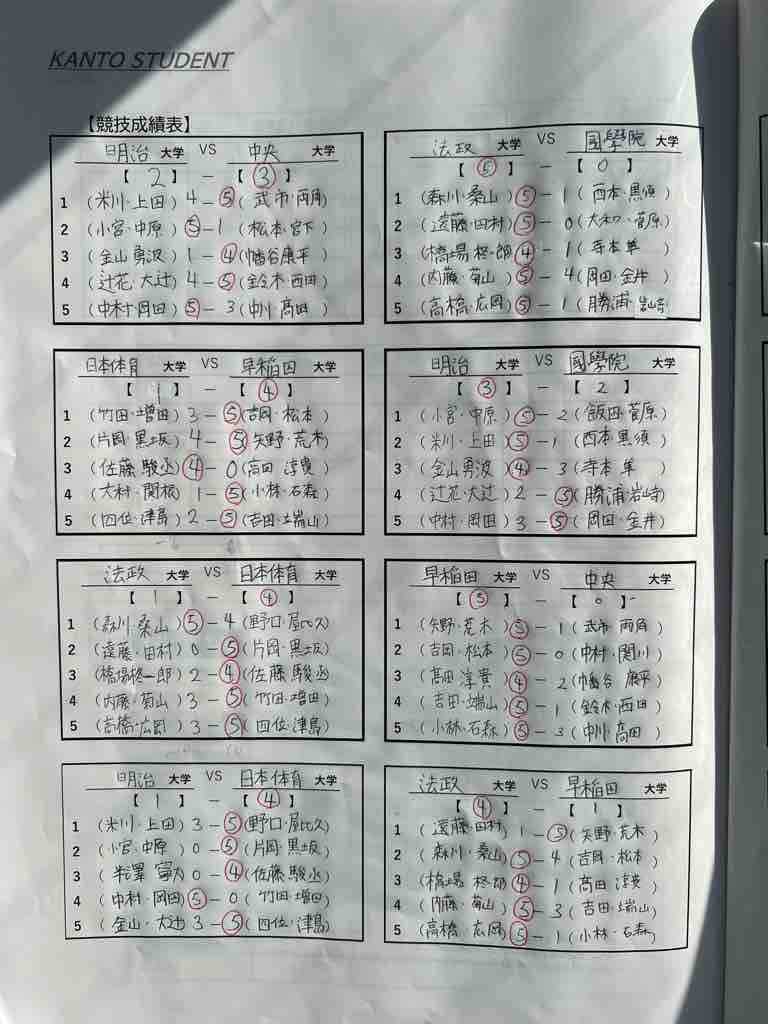 KANTO STUDENT
【競技成績表】
明治 大学 VS 中央 大学
【 2 】 － 【 ③ 】
1 (米川・上田) 4 － ⑤ (武市・両角)
2 (小宮・中原) ⑤ － 1 (松本・宮下)
3 (金山勇波) 1 － ④ (幡谷康平)
4 (辻花・大辻) 4 － ⑤ (鈴木・西田)
5 (中村・岡田) ⑤ － 3 (中川・高田)
法政 大学 VS 國學院 大学
【 ⑤ 】 － 【 0 】
1 (森川・桑山) ⑤ － 1 (西本・黒須)
2 (遠藤・田村) ⑤ － 0 (大和・菅原)
3 (橋場柊一郎) ④ － 1 (寺本 隼)
4 (内藤・菊山) ⑤ － 4 (岡田・金井)
5 (高橋・広岡) ⑤ － 1 (勝浦・岩崎)
日本体育 大学 VS 早稲田 大学
【 1 】 － 【 ④ 】
1 (竹田・増田) 3 － ⑤ (吉岡・松本)
2 (片岡・黒坂) 4 － ⑤ (矢野・荒木)
3 (佐藤駿丞) ④ － 0 (高田 淳貴)
4 (大村・関根) 1 － ⑤ (小林・石森)
5 (四位・津島) 2 － ⑤ (吉田・端山)
明治 大学 VS 國學院 大学
【 ③ 】 － 【 2 】
1 (小宮・中原) ⑤ － 2 (飯田・菅原)
2 (米川・上田) ⑤ － 1 (西本・黒須)
3 (金山勇波) ④ － 3 (寺本 隼)
4 (辻花・大辻) 2 － ⑤ (勝浦・岩崎)
5 (中村・岡田) 3 － ⑤ (岡田・金井)
法政 大学 VS 日本体育 大学
【 1 】 － 【 ④ 】
1 (森川・桑山) ⑤ － 4 (野口・屋比久)
2 (遠藤・田村) 0 － ⑤ (片岡・黒坂)
3 (橋場柊一郎) 2 － ④ (佐藤駿丞)
4 (内藤・菊山) 3 － ⑤ (竹田・増田)
5 (高橋・広岡) 3 － ⑤ (四位・津島)
早稲田 大学 VS 中央 大学
【 ⑤ 】 － 【 0 】
1 (矢野・荒木) ⑤ － 1 (武市・両角)
2 (吉岡・松本) ⑤ － 0 (中村・関川)
3 (高田淳貴) ④ － 2 (幡谷 康平)
4 (吉田・端山) ⑤ － 1 (鈴木・西田)
5 (小林・石森) ⑤ － 3 (中川・高田)
明治 大学 VS 日本体育 大学
【 1 】 － 【 ④ 】
1 (米川・上田) 3 － ⑤ (野口・屋比久)
2 (小宮・中原) 0 － ⑤ (片岡・黒坂)
3 0 － ④ (佐藤駿丞)
4 (中村・岡田) ⑤ － 0 (竹田・増田)
5 (金山・大辻) 3 － ⑤ (四位・津島)
法政 大学 VS 早稲田 大学
【 ④ 】 － 【 1 】
1 (遠藤・田村) 1 － ⑤ (矢野・荒木)
2 (森川・桑山) ⑤ － 4 (吉岡・松本)
3 (橋場柊一郎) ④ － 1 (高田 淳貴)
4 (内藤・菊山) ⑤ － 3 (吉田・端山)
5 (高橋・広岡) ⑤ － 1 (小林・石森)